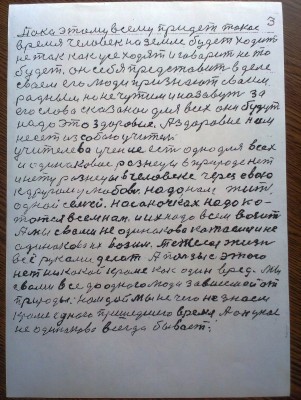 3
Пока этому всему придет такое
время человек на земле будет ходить
не так как уже ходят и говорит не то
будет, он себя представит в деле
своем его люди признают своим
родным ни не чужим и назовут за
его слова сказаное для всех они будут
надо это здоровье, А Здоровье нам
несет из собою учитель
учителева учение есть одно для всех
и одинаковае розницы в природе нет
и нету розницы в человеке через свою
к другому любовь надо нам жить
одной семьей. на саночках надо ка-
тотся всем нам. и их надо всем возить
А мы своими не одинаково катаемся не
одинаково их возим. Тежолоя жизнь
всё руками делат Аползы с этого
нет никакой кроме как один вред. Мы
своим все до одного люди зависимой от
природы. на м мы не чего не знаем
кроме одного пришедшего время А оно у нас
не одинаково всегда бывает: